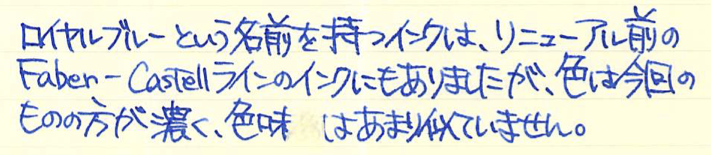 ロイヤルブルーという名前を持つインクは、リニューアル前の
Faber-Castellラインのインクにもありましたが、色は今回の
ものの方が濃く、色味はあまり似ていません。